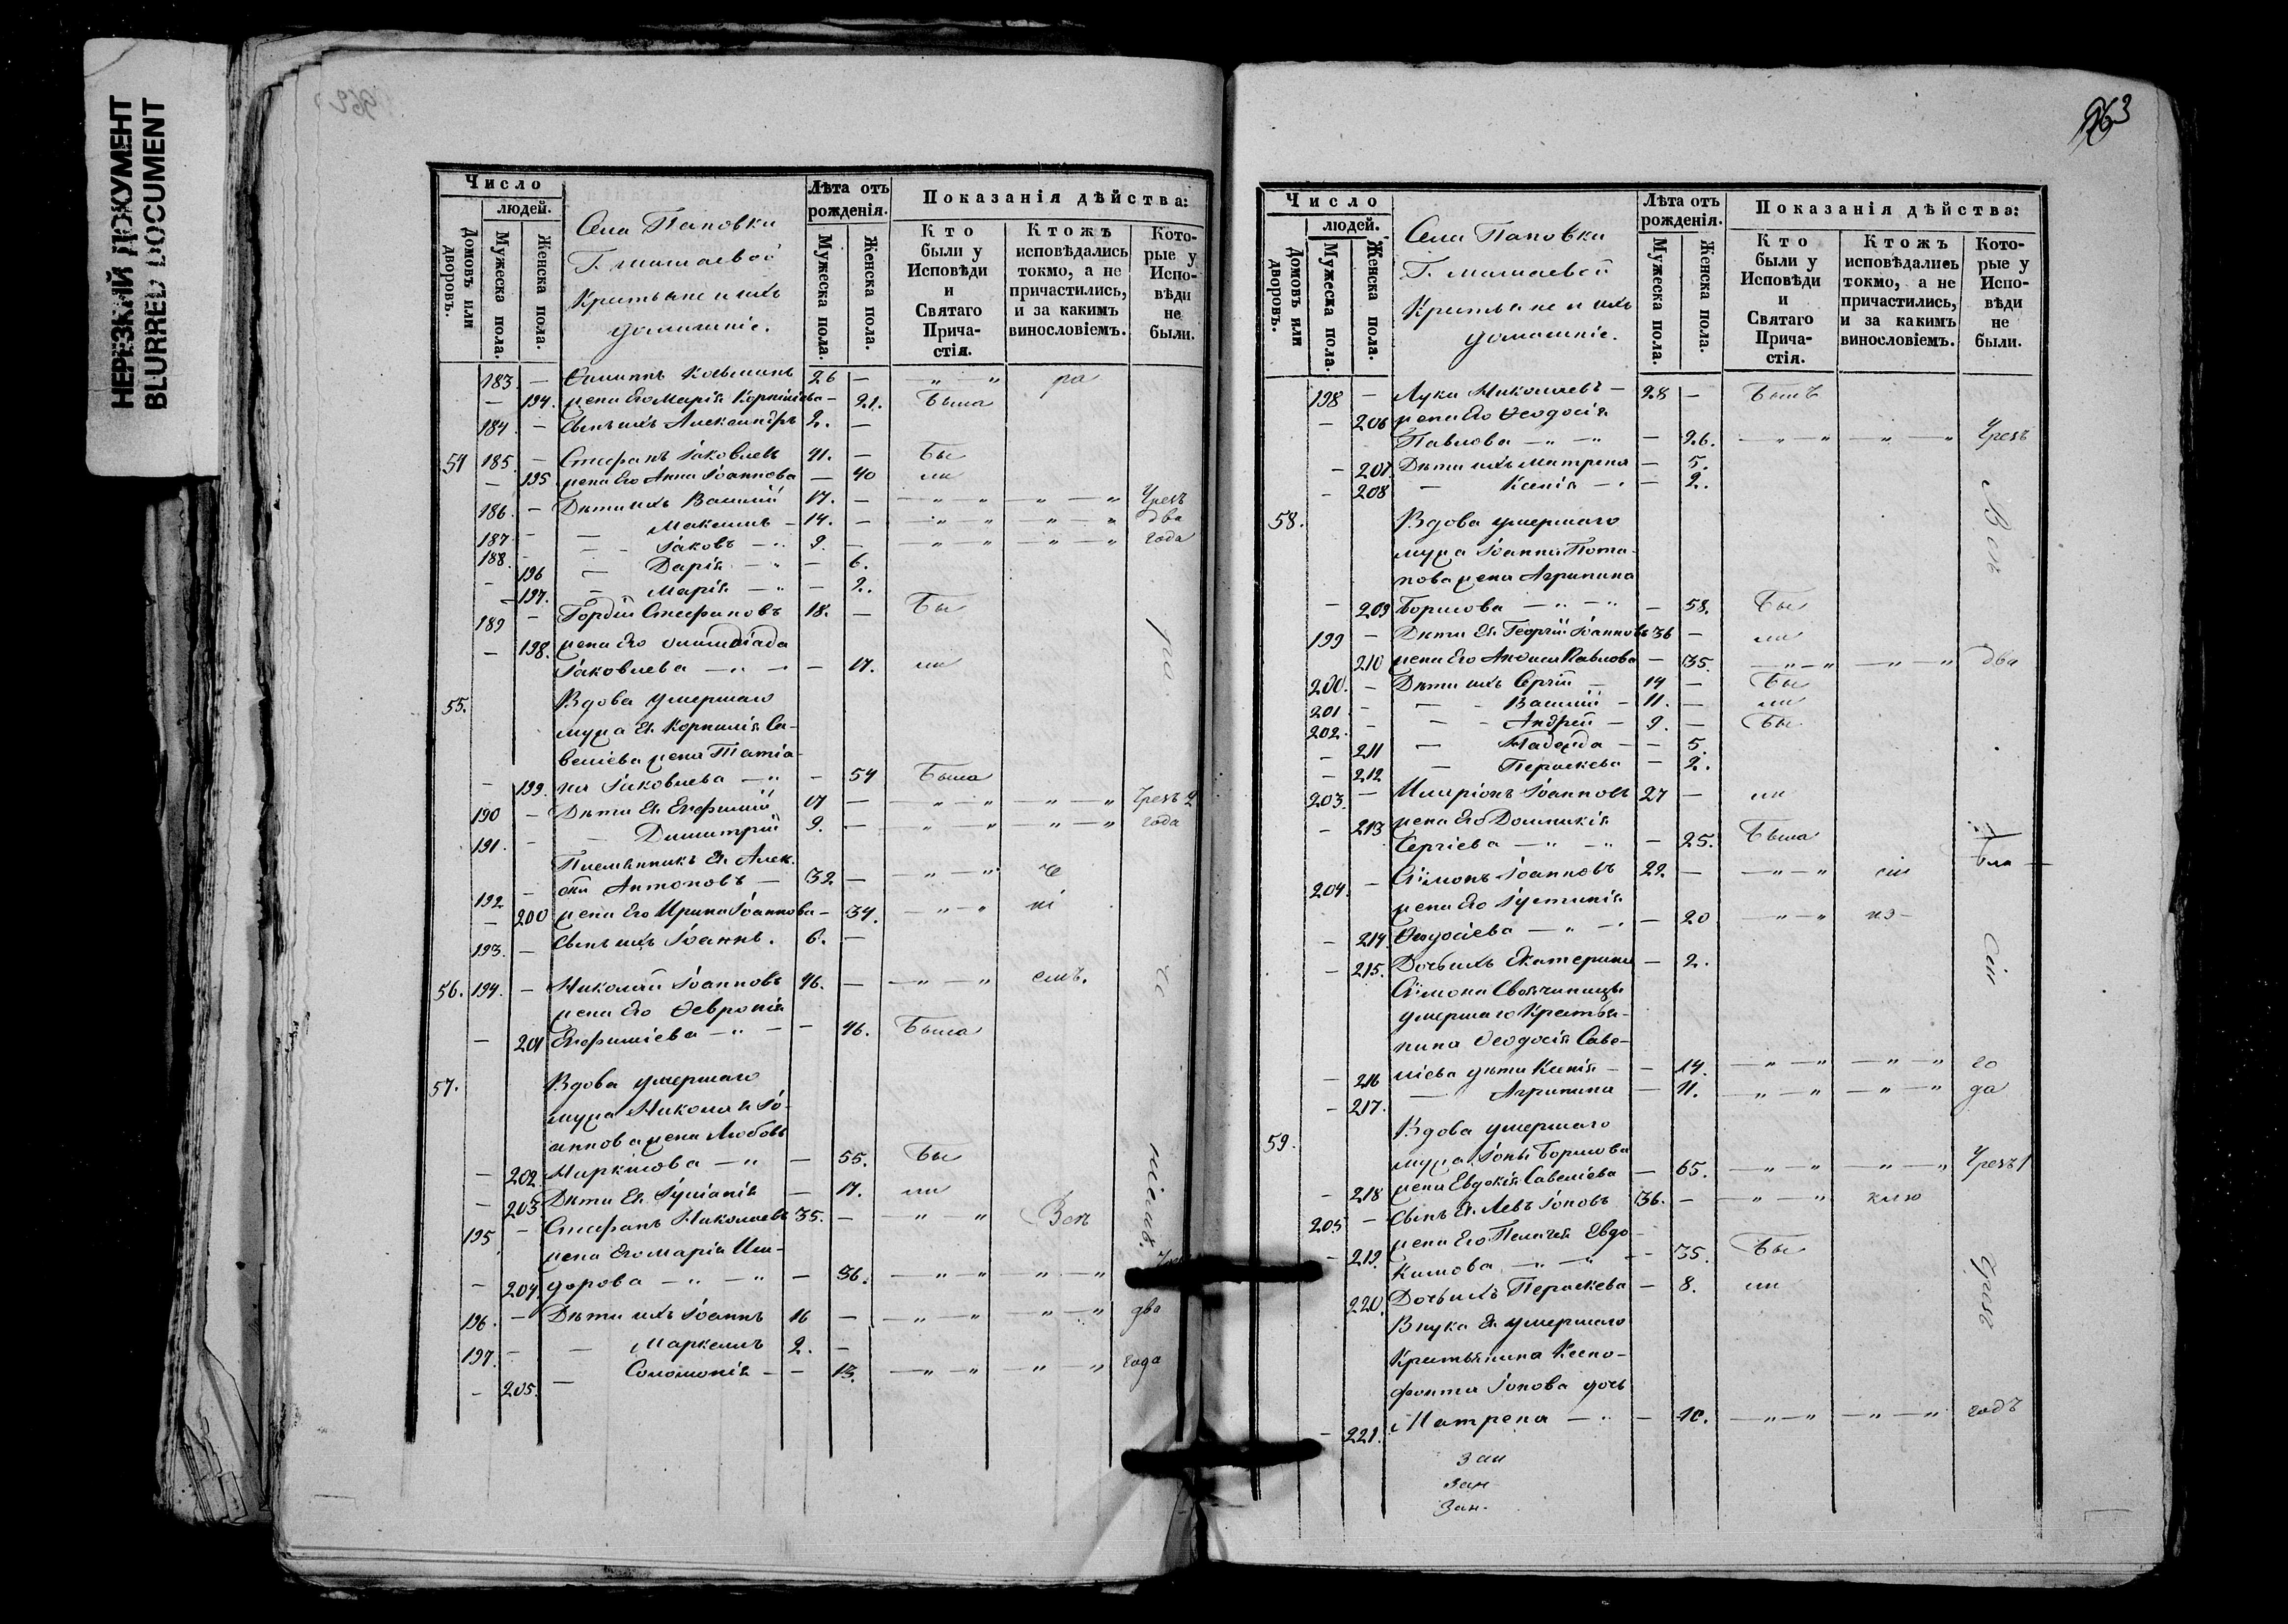 НЕРЕЗКИЙ ДОКУМЕНТ
BLURRED DOCUMENT
Число
людей.
Домовъ или дворовъ.
Мужеска пола.
Женска пола.
Села Поповки
Г.
Крестьяне и ихъ
домашніе.
Лѣта отъ рожденія.
Мужеска пола.
Женска пола.
Показанія дѣйства:
Кто были у Исповѣди и Святаго Прича-стія.
Ктожъ исповѣдались токмо, а не причастились, и за какимъ винословіемъ.
Кото-рые у Испо-вѣди не были.
183. — Филиппъ 26 — — „ — „ ра
— 194. жена его Марія Корниліева — 21. Была
184 — Сынъ ихъ Александръ 2. —
54 185. — Стефанъ Іаковлевъ 41. — Бы
— 195 жена его Анна Іоаннова — 40 ли
186. — Дѣти ихъ Василій 17. — — „ — „ — „ — „ Чрезъ
187 — — Максимъ — 14. — — „ — „ — „ — „ два
188. — — Іаковъ — „ 9. — — „ — „ — „ — „ года
— 196 — Дарія — „ — 6.
— 197. — Марія — „ — 2.
189 — Гордій Стефановъ 18. — Бы
— 198. жена его Олимпіада
Іаковлева — „ — — 17. ли
55. Вдова умершаго
мужа ея Корнилія Са-
веліева жена Татіа-
— 199. на Іаковлева — „ — 54 Была
190 — Дѣти ея Евфимій 17 — — „ — „ — „ — „ Чрезъ 2
191. — — Димитрій 9. — — „ — „ — „ — „ года
Племянникъ ея Алек-
192 — сѣй Антоновъ — 32. — — „ — „ че
— 200 жена его Ирина Іоаннова — 34. — „ — „ ні
193. — Сынъ ихъ Іоаннъ. 6. —
56. 194. — Николай Іоанновъ 46. — — „ — „ емъ.
жена его Ѳевронія
— 201 Евфиміева — „ — — 46. Была
57. Вдова умершаго
мужа Николая Іо-
аннова жена Любовь
— 202. Миркилова — „ — 55. Бы
— 203 Дѣти ея Іуліанія — 17. ли
195 — Стефанъ Николаевъ 35. — — „ „ Воз
жена его Марія Иси-
— 204. дорова — „ — „ — 36. — „ — „ „ — „
196. — Дѣти ихъ Іоаннъ 16 — — „ — „ „ — „ два
197. — — Маркеллъ 2. —
— 205. — Соломонія — — 13. — „ — „ — „ — „ года
963
Число
людей.
Домовъ или дворовъ.
Мужеска пола.
Женска пола.
Села Поповки
Г.
Крестьяне и ихъ
домашніе.
Лѣта отъ рожденія.
Мужеска пола.
Женска пола.
Показанія дѣйства:
Кто были у Исповѣди и Святаго Прича-стія.
Ктожъ исповѣдались токмо, а не причастились, и за какимъ винословіемъ.
Кото-рые у Испо-вѣди не были.
198 — Лука Николаевъ — 28 — Былъ
— 206 жена его Ѳеодосія
Павлова — „ — „ — 26. — „ — „ — „ — „ Чрезъ
— 207. Дѣти ихъ Матрена — 5.
— 208 — Ксенія — „ — 2.
58. Вдова умершаго
мужа Іоанна Пота-
пова жена Агрипина
— 209 Борисова — „ — „ — 58. Бы
199 — Дѣти ея Георгій Іоанновъ 36 — ли
210 жена его Павлова — 35. — „ — „ — „ — „ два
200. — Дѣти ихъ Сергій — 14 — Бы
201 — — Василій — 11. — ли
202. — — Андрей — 9. — Бы
— 211 — Надежда — — 5.
— 212 — Параскева — 2.
203. — Иларіонъ Іоанновъ 27 — ли
— 213 жена его Домникія
Сергіева — „ — „ — 25. Была
204. — Сѵмонъ Іоанновъ 22. — — „ — „
жена его Іустинія
— 214. Ѳеодосіева — „ — — 20 — „ — „
— 215. Дочь ихъ Екатерина — 2.
Сѵмона Своячиницы
умершаго Крестья-
нина Ѳеодосія Саве-
— 216 ліева дѣти Ксенія — — 14. — „ — „ — „ — „ го
— 217. — Агрипина — 11. — „ — „ — „ — „ да
59. Вдова умершаго
мужа Іоны Борисова
— 218 жена Евдокія Савеліева — 65. — „ — „ — „ — „ Чрезъ 1
205 — Сынъ ея Левъ Іоновъ 36. — — „ — „
жена его Пелагея Евдо-
— 219. кимова — „ — „ — 35. Бы
220. Дочь ихъ Параскева — 8. ли
Внука ея умершаго
Крестьянина Ксено-
фонта Іонова дочь
— 221. Матрена — „ — 10. — „ — „ — „ — „ годъ